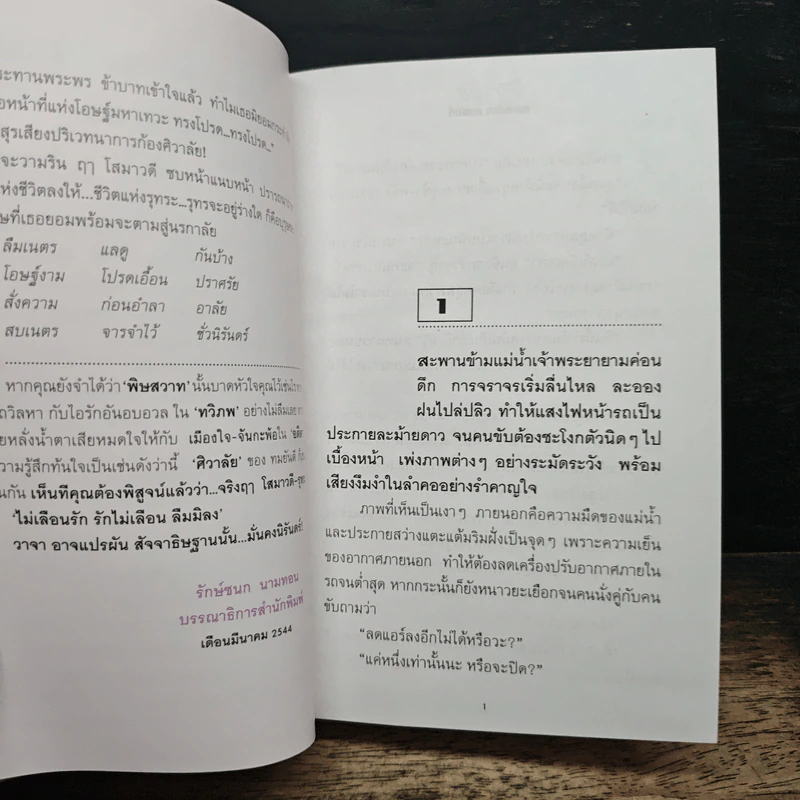 ะทานพระพร ข้าบาทเข้าใจแล้ว ทำไมเธอมิยอม
หน้าที่แห่งโอษฐ์มหาเทวะ ทรงโปรด...ทรงโปรด..."
สุรเสียงปริเวทนาการก้องศิวาลัย!
จะวามริน ฤๅ โสมาวดี ซบหน้าแนบหน้า
ห่งชีวิตลงให้...ชีวิตแห่งรุทระ...รุทรจะอยู่ร่างใด
ษที่เธอยอมพร้อมจะตามสู่นรกาลัย
ลืมเนตร แลดู กันบ้าง
โอษฐ์งาม โปรดเอื้อน ปราศรัย
สั่งความ ก่อนอำลา อาลัย
สบเนตร จารจำไว้ ชั่วนิรันดร์
หากคุณยังจำได้ว่า 'พิษสวาท' นั้นบาดหัวใจคุณไว้เช่นไร
ถวิลหา กับไอรักอันอบอวล ใน 'ทวิภพ' อย่างไม่ลืมเลย
ยหลั่งน้ำตาเสียหมดใจให้กับ เมืองใจ-จันกะพ้อใน
ความรู้สึกทันใจเป็นเช่นดังว่านี้ 'ศิวาลัย' ของ ทมยันตี
นกัน เห็นทีคุณต้องพิสูจน์แล้วว่า...จริงฤๅ โสมาวดี-รุทร
'ไม่เลือนรัก รักไม่เลือน ลืมมิลง'
วาจา อาจแปรผัน สัจจาธิษฐานนั้น...มั่นคงนิรันดร์!
รักษ์ชนก นามทอน
บรรณาธิการสำนักพิมพ์
เดือนมีนาคม 2544
1
สะพานข้ามแม่น้ำเจ้าพระยายามค่อน
ดึก การจราจรเริ่มลื่นไหล ละออง
ฝนไปล่ปลิว ทำให้แสงไฟหน้ารถเป็น
ประกายละม้ายดาว จนคนขับต้องชะโงกตัวนิดๆ ไป
เบื้องหน้า เพ่งภาพต่างๆ อย่างระมัดระวัง พร้อม
เสียงงึมงำในลำคออย่างรำคาญใจ
ภาพที่เห็นเป็นเงาๆ ภายนอกคือความมืดของแม่น้ำ
และประกายสว่างแตะแต้มริมฝั่งเป็นจุดๆ เพราะความเย็น
ของอากาศภายนอก ทำให้ต้องลดเครื่องปรับอากาศภายใน
รถจนต่ำสุด หากกระนั้นก็ยังหนาวยะเยือกจนคนนั่งคู่กับคน
ขับถามว่า
"ลดแอร์ลงอีกไม่ได้หรือวะ?"
"แค่หนึ่งเท่านั้นนะ หรือจะปิด?"
1